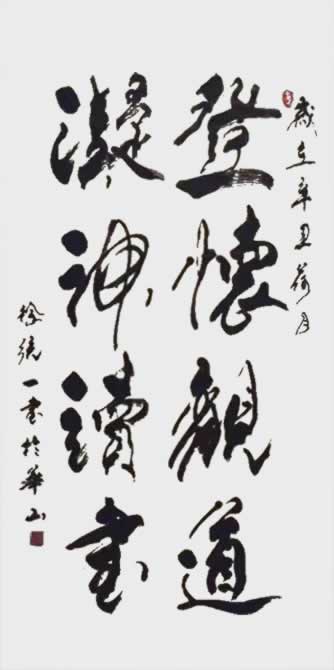 歲在辛丑荷月
登懷觀道
凝神讀書
徐統一書於華山